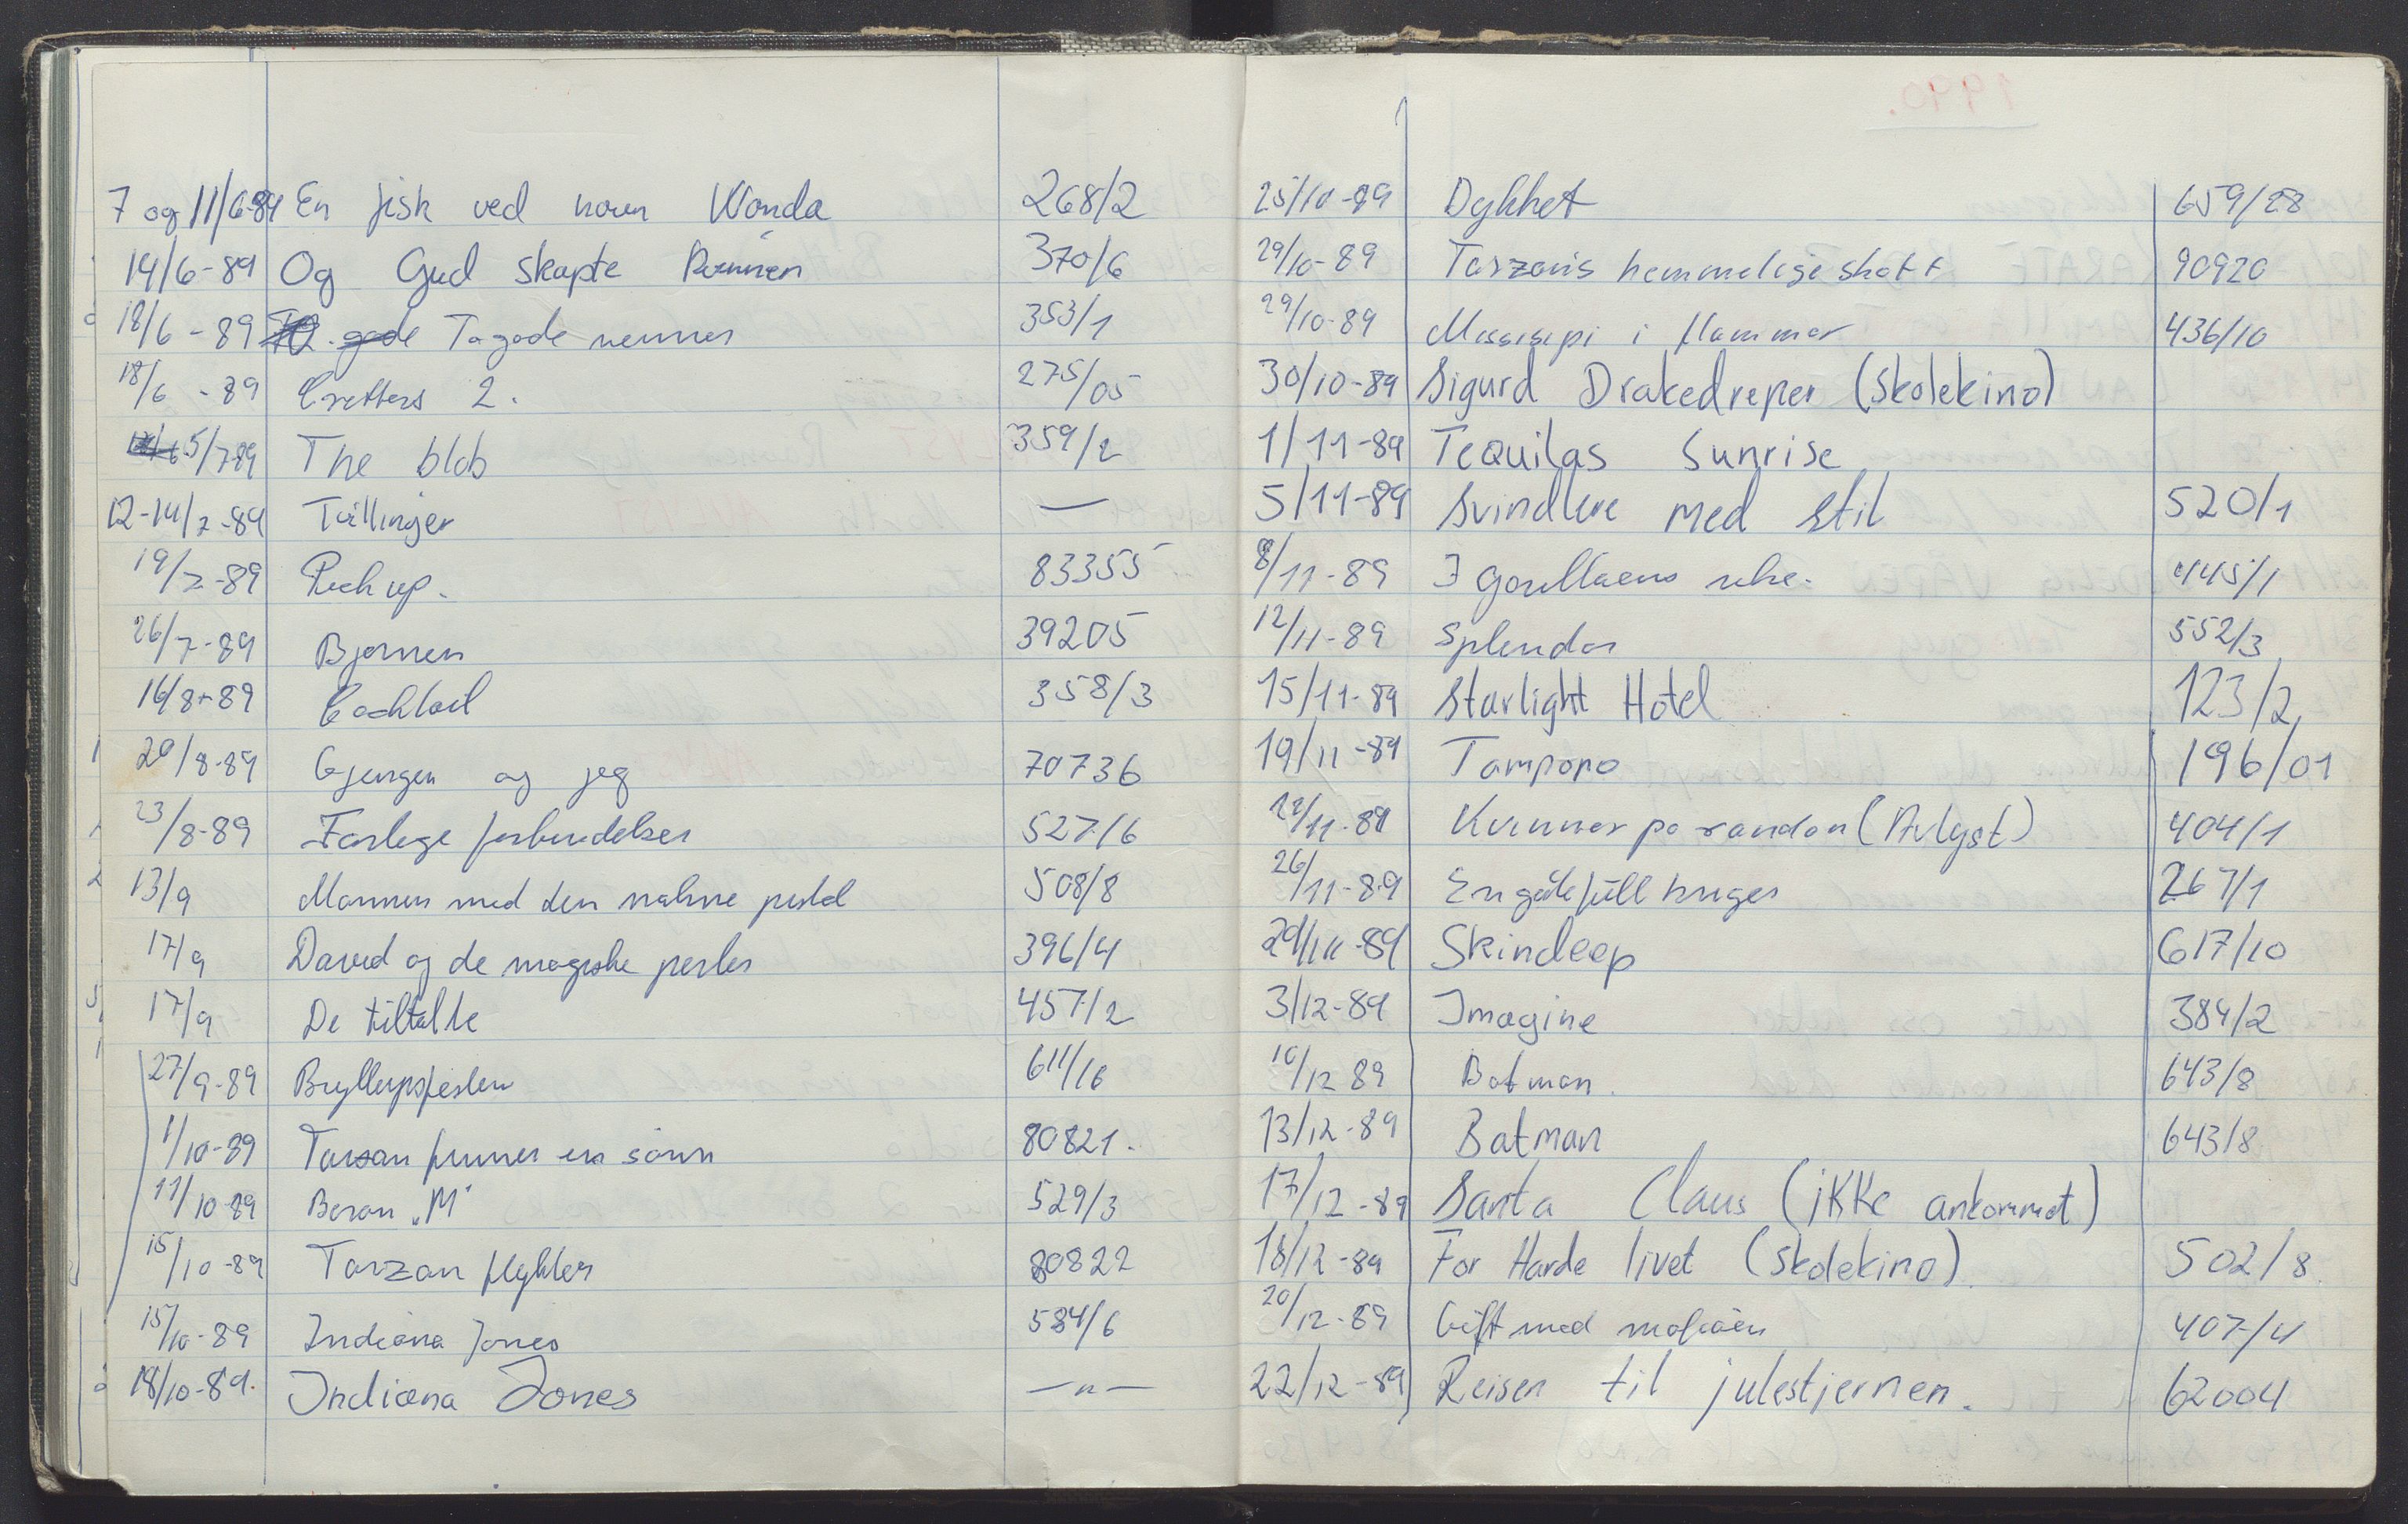 7 og 11/6-89 En fisk ved navn Wonda 268/2
14/6-89 Og Gud skapte kvinnen 370/6
18/6-89 To gode venner 353/1
18/6-89 Critters 2. 275/05
5/7-89 The blob 359/2
12-14/7-89 Tvillinger —
19/7-89 Pick up. 83355
26/7-89 Bjørnen 39205
16/8-89 Cocktail 358/3
20/8-89 Gjengen og jeg 70736
23/8-89 Farlige forbindelser 527/6
13/9 Mannen med den nakne pistol 508/8
17/9 David og de magiske perler 396/4
17/9 De tiltalte 457/2
27/9-89 Bryllupsfesten 611/16
1/10-89 Tarsan finner en sønn 80821.
11/10-89 Baron "M" 529/3
15/10-89 Tarzan flykter 80822
15/10-89 Indiana Jones 584/6
18/10-89. Indiana Jones —"—
1990.
25/10-89 Dykket 659/28
29/10-89 Tarzan's hemmelige skatt 90920
29/10-89 Missisipi i flammer 436/10
30/10-89 Sigurd Drakedreper (skolekino)
1/11-89 Tequilas Sunrise
5/11-89 Svindlere med stil 520/1
8/11-89 I Gorillaens rike. 445/1
12/11-89 Splendor 552/3
15/11-89 Starlight Hotel 123/2
19/11-89 Tampopo 196/01
22/11-89 Kvinner på randen (Avlyst) 404/1
26/11-89 En gåtefull kriger 267/1
29/11-89 Skindeep 617/10
3/12-89 Imagine 384/2
10/12 89 Batman. 643/8
13/12-89 Batman 643/8
17/12-89 Santa Claus (ikke ankommet)
18/12-89 For Harde livet (skolekino). 502/8
20/12-89 Gift med mafiaen 407/4
22/12-89 Reisen til julestjernen. 62004